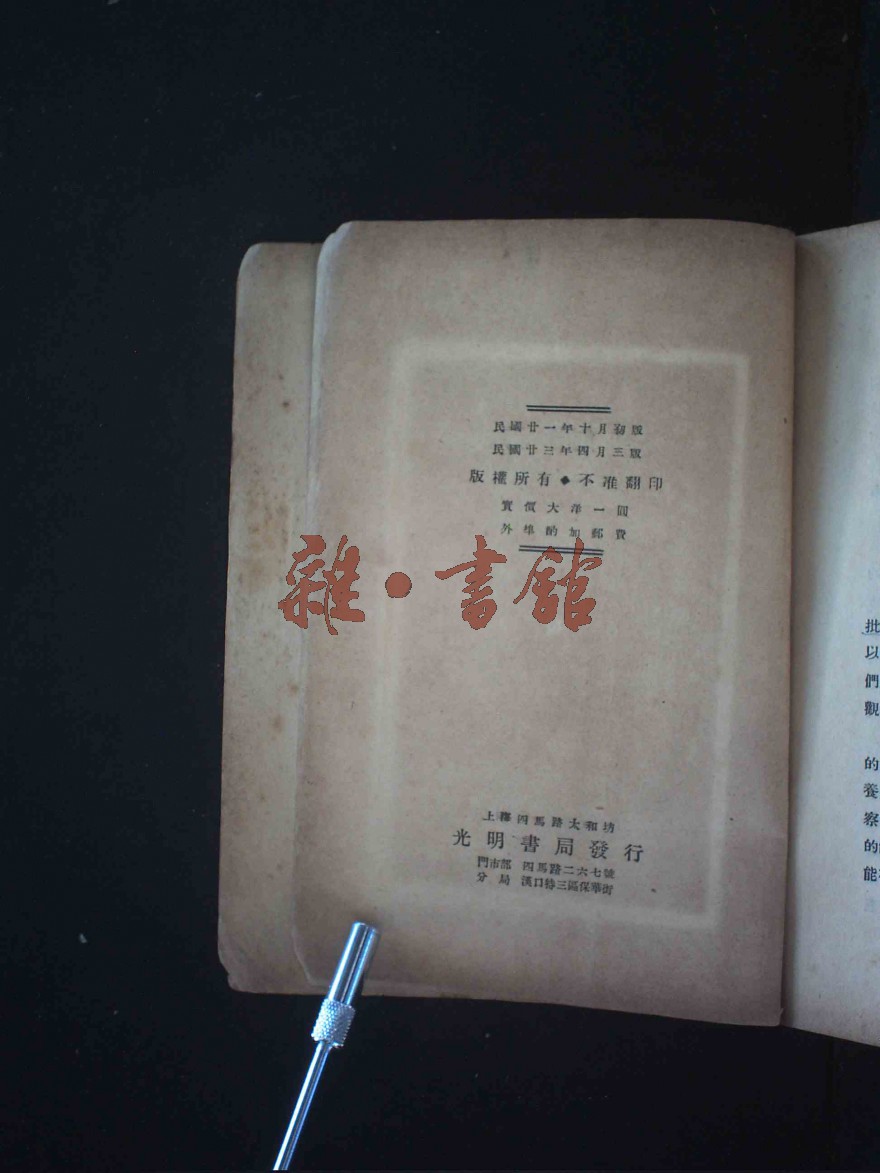 民國廿一年十月初版
民國廿三年四月三版
版權所有◆不准翻印
實價大洋一圓
外埠酌加郵費
雜·書館
上海四馬路太和坊
光明書局發行
門市部 四馬路二六七號
分局 漢口特三區保華街
批
以
們
觀
的
養
察
的
能